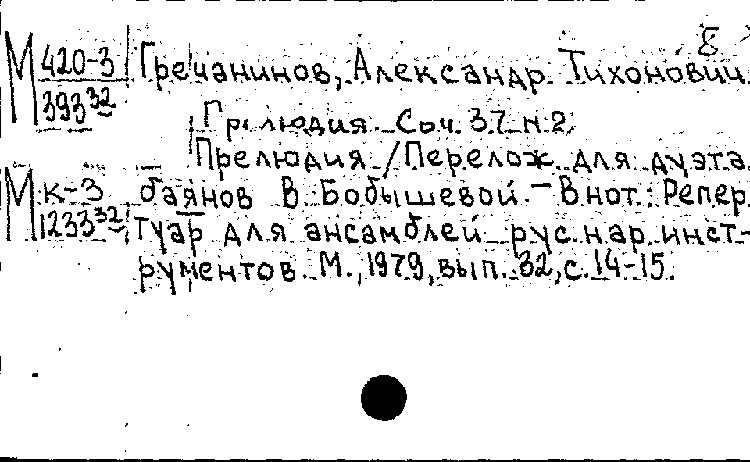 Б
М 420-3 Гречанинов, Александр Тихонович
393 32
Прелюдия. Соч. 37 н 2
Прелюдия / Перелож. для дуэта
М к-3 баянов В. Бобышевой. - В нот.: Репер
1233 32 туар для ансамблей рус. нар. инст-
рументов. М., 1979, вып. 32, с. 14-15.